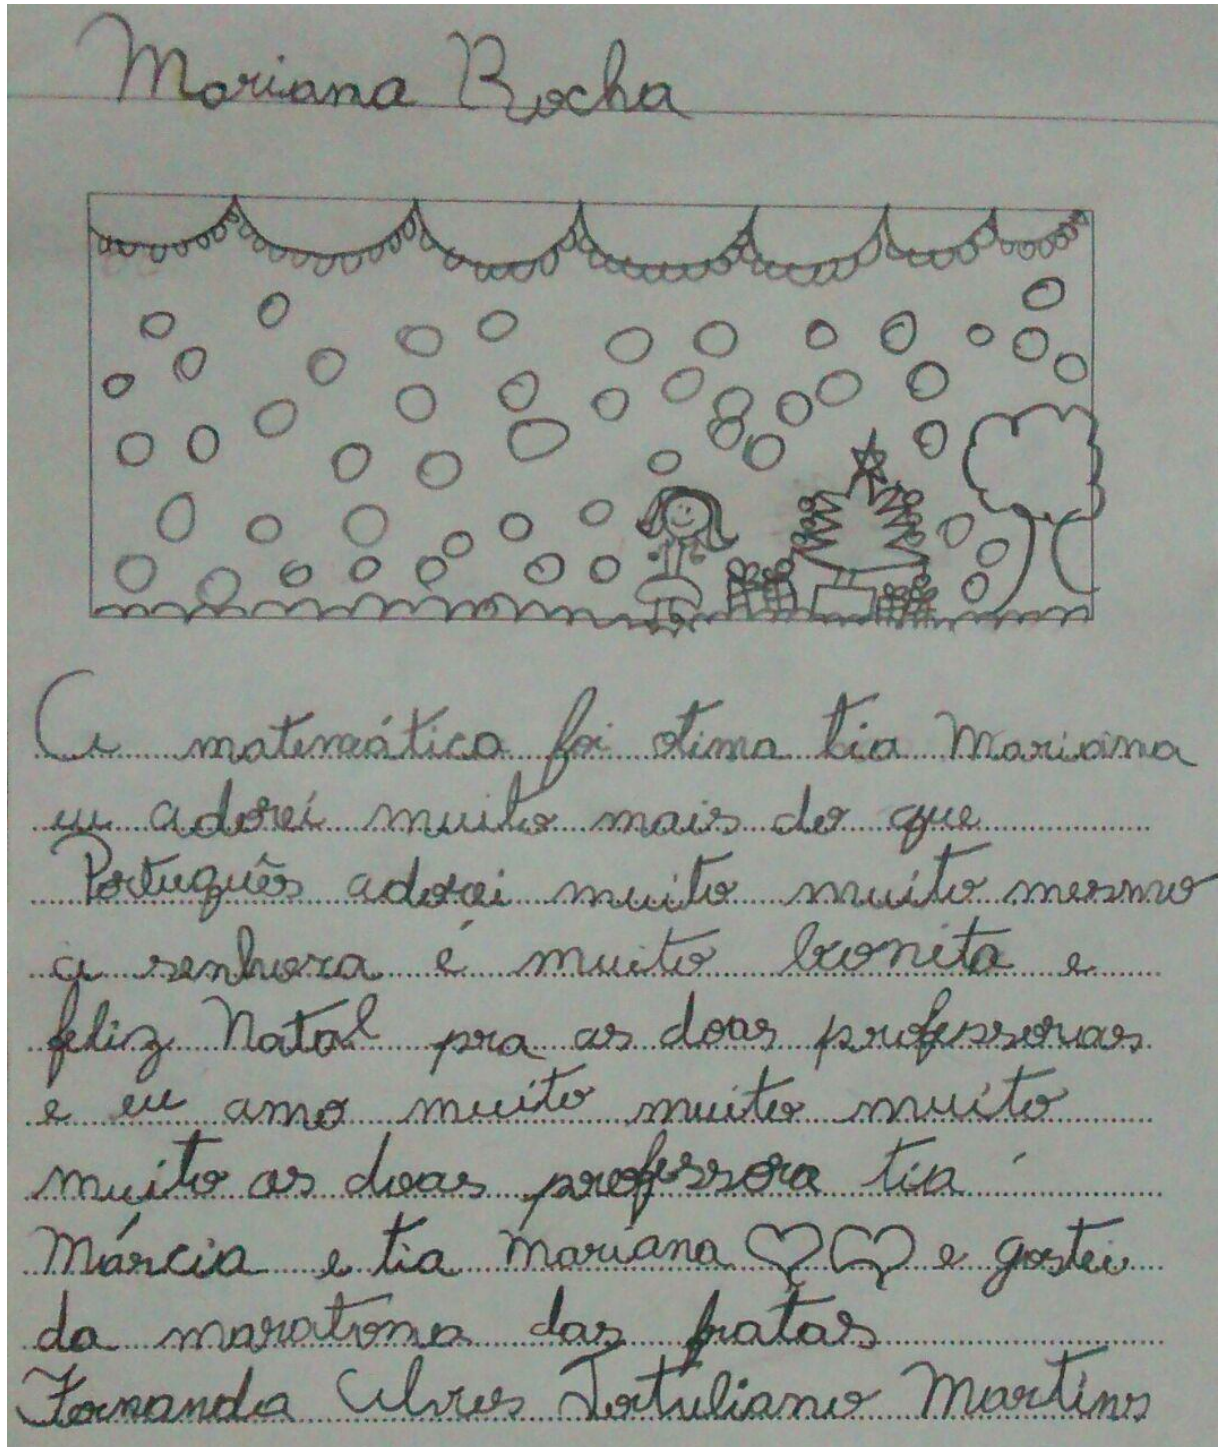 Mariana Rocha
A matemática foi otima tia Mariana
eu adorei muito mais do que
Português adorei muito muito mesmo
a senhora é muito bonita e
feliz Natal pra as doas professoras
e eu amo muito muito muito
muito as doas professora tia
Márcia e tia Mariana e gostei
da maratona das
Fernanda Alves Tertuliano Martins